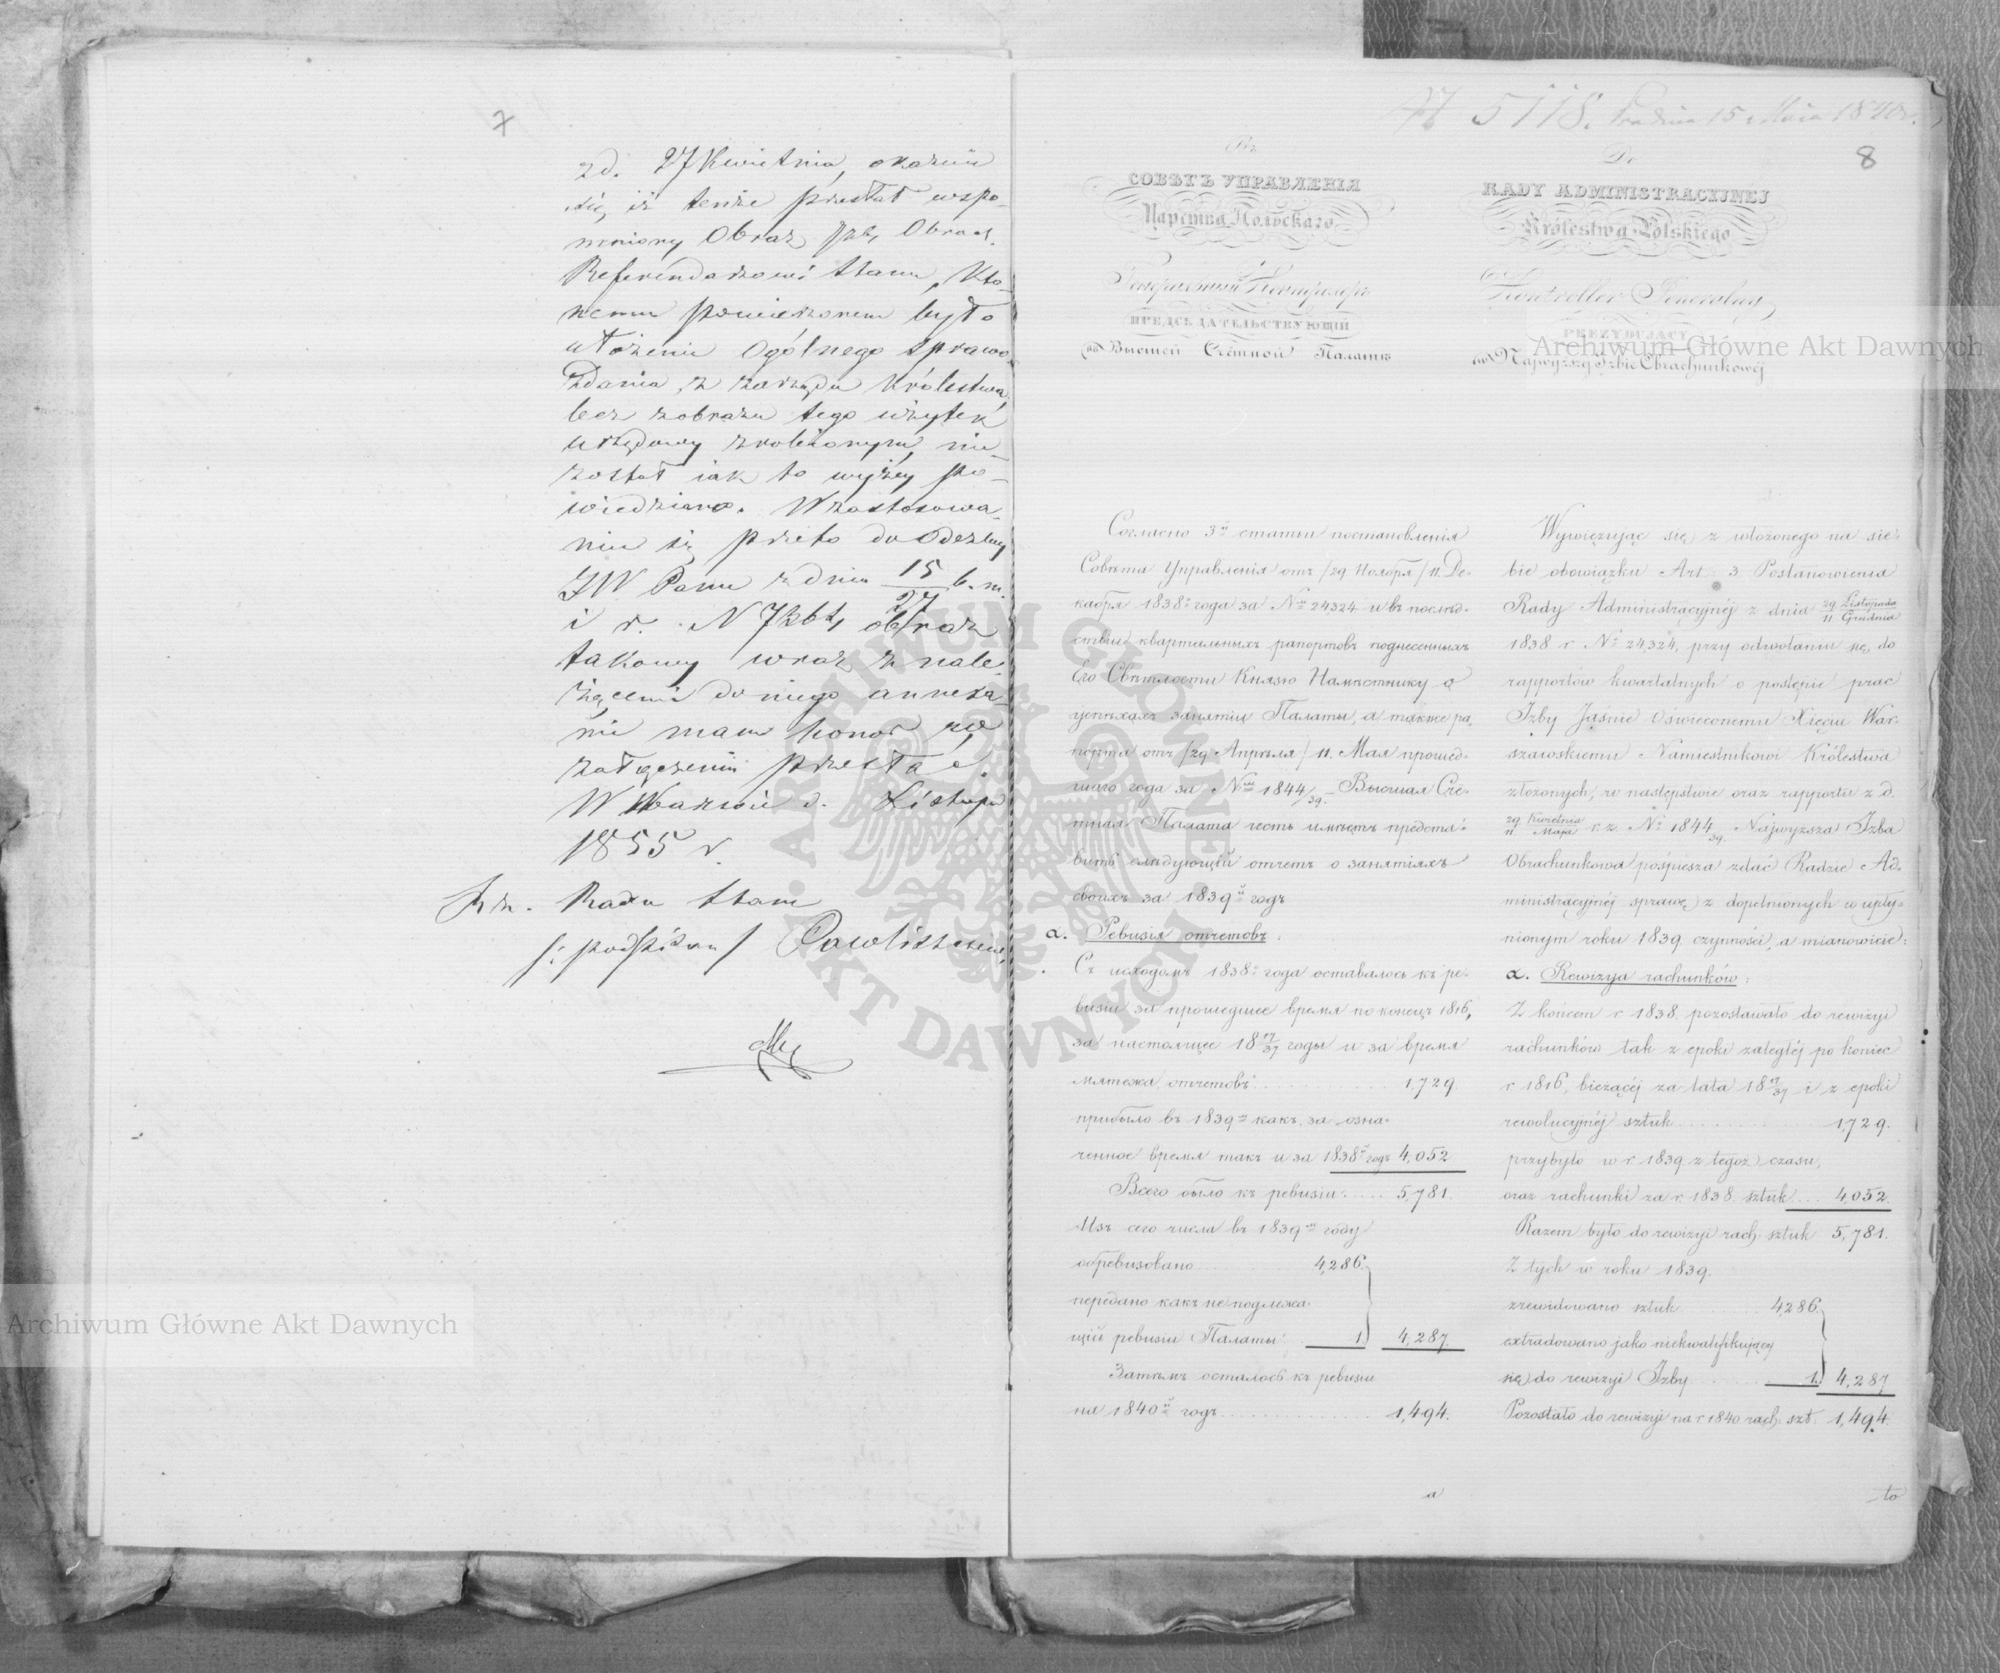 7
zd. 27 Kwietnia, okazuie
się, iż tenże przestał wspo-
mniony Obraz Izb. Obrach.
Referendarzowi Stanu, Któ-
remu powierzonem było
ułożenie Ogólnego Sprawo-
zdania z zarządu Królestwa,
lecz zobrazu tego użytek
urzędowy zrobionym nie
został iak to wyżey po-
wiedziano. W zastosowa-
niu się przeto do Odezwy
JW Pana z dnia 15/27 b. m.
i r. N 7261, obraz
takowy wraz z nale-
żącemi do niego annexa-
mi mam honor w
załączeniu przesłać.
W Warszawie d. Listopa
1855 r.
Rz. Radca Stanu
/: podpisano / Pawliszczew,
№ 5118. 15 Maia 1840 r.
8
Въ
СОВѢТЪ УПРАВЛЕНІЯ
Царства Польскаго
Генеральный Контролеръ
ПРЕДСѢДАТЕЛЬСТВУЮЩІЙ
въ Высшей Счётной Палатѣ
Согласно 3й статьи постановленія
Совѣта Управленія отъ /29 Ноября/ 11. Де-
кабря 1838го года за № 24324 и въ послѣд-
ствіи квартальныхъ рапортовъ поднесенныхъ
Его Свѣтлости Князю Намѣстнику о
успѣхахъ занятій Палаты, а также ра-
порта отъ /29 Апрѣля/ 11. Мая прошед-
шаго года за № 1844/39. Высшая Счё-
тная Палата честь имѣетъ предста-
вить слѣдующій отчетъ о занятіяхъ
своихъ за 1839й годъ
a. Ревизія отчетовъ.
Съ исходомъ 1838го года оставалось къ ре-
визіи за прошедшее время по конецъ 1816,
за настоящее 18 17/37 годы и за время
мятежа отчетовъ 1,729.
прибыло въ 1839м какъ за озна-
ченное время такъ и за 1838й годъ 4,052
Всего было къ ревизіи 5,781.
Изъ сего числа въ 1839м году
обревизовано 4,286.
передано какъ неподлежа-
щій ревизіи Палаты 1 4,287.
Затѣмъ осталось къ ревизіи
на 1840й годъ 1,494.
а
Do
RADY ADMINISTRACYJNEJ
Królestwa Polskiego
Kontroller Jeneralny
PREZYDUJĄCY
w Najwyższej Izbie Obrachunkowej
Wywięzując się z włożonego na sie-
bie obowiązku Art. 3 Postanowienia
Rady Administracyjnéj z dnia 29 Listopada/11 Grudnia
1838 r. № 24324, przy odwołaniu się do
rapportów kwartalnych o postępie prac
Izby Jaśnie Oświeconemu Xięciu War-
szawskiemu Namiestnikowi Królestwa
złożonych, w następstwie oraz rapportu z d.
29 Kwietnia/11 Maja r. z. № 1844/39. Najwyższa Izba
Obrachunkowa pośpiesza zdać Radzie Ad-
ministracyjnéj sprawę z dopełnionych w upły-
nionym roku 1839 czynności, a mianowicie:
a. Rewizya rachunków:
Z końcem r. 1838. pozostawało do rewizyi
rachunków tak z epoki zaległéj po koniec
r. 1816, bieżącéj za lata 18 17/37 i z epoki
rewolucyjnéj sztuk 1,729.
przybyło w r. 1839 z tegoż czasu,
oraz rachunki za r. 1838. sztuk 4,052.
Razem było do rewizyi rach. sztuk 5,781.
Z tych w roku 1839.
zrewidowano sztuk 4,286.
extradowano jako niekwalifikujący
się do rewizyi Izby 1. 4,287
Pozostało do rewizyi na r. 1840 rach. szt. 1,494.
to
Archiwum Główne Akt Dawnych
Archiwum Główne Akt Dawnych
ARCHIWUM GŁÓWNE AKT DAWNYCH